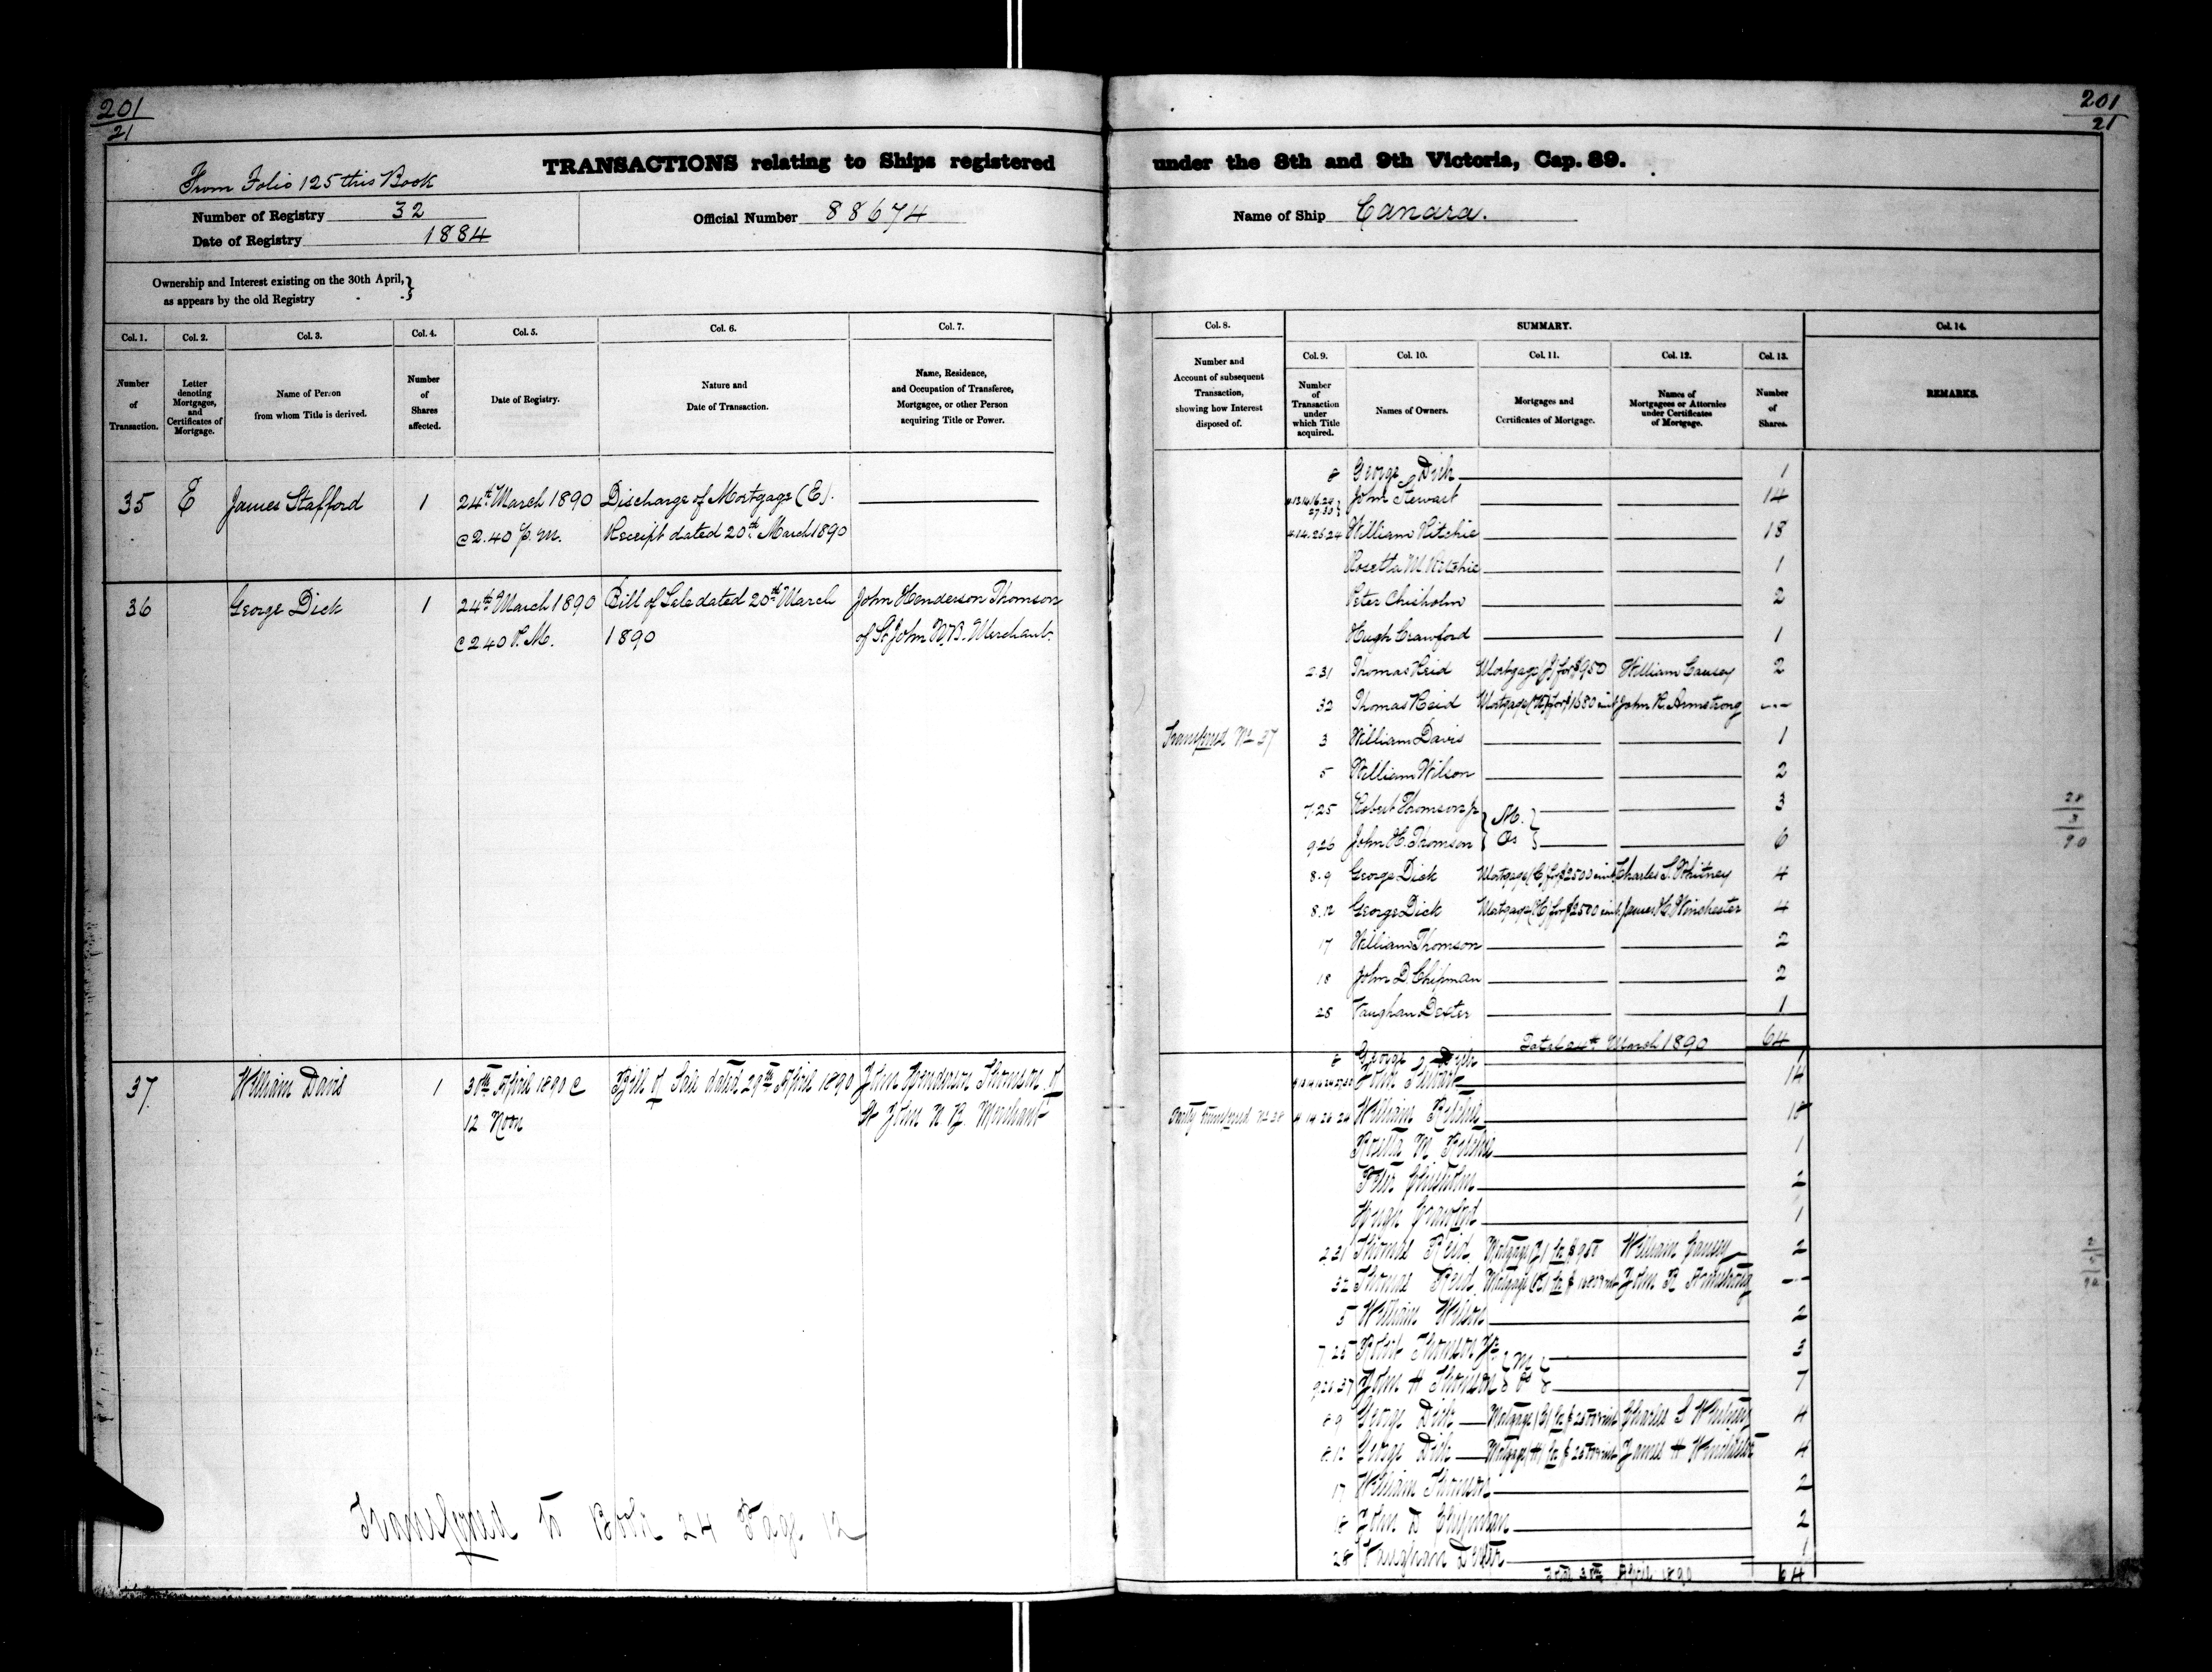 201
21
201
21
TRANSACTIONS relating to Ships registered under the 8th and 9th Victoria, Cap. 89.
From Folio 125 this Book
Number of Registry 32
Date of Registry 1884
Official Number 88674
Name of Ship Canara.
Ownership and Interest existing on the 30th April,}
as appears by the old Registry
Col. 1. Col. 2. Col. 3. Col. 4. Col. 5. Col. 6. Col. 7.
Number of Transaction.
Letter denoting Mortgages, and Certificates of Mortgage.
Name of Person from whom Title is derived.
Number of Shares affected.
Date of Registry.
Nature and Date of Transaction.
Name, Residence, and Occupation of Transferee, Mortgagee, or other Person acquiring Title or Power.
35 E James Stafford 1 24th March 1890 Discharge of Mortgage (E).
@ 2.40 p.m. Receipt dated 20th March 1890
36 George Dick 1 24th March 1890 Bill of Sale dated 20th March John Henderson Thomson
@ 2 40 P.M. 1890 of St John N.B. Merchant
37 William Davis 1 30th April 1890 @ Bill of Sale dated 29th April 1890 John Henderson Thomson of
12 Noon St John N B. Merchant
Transferred to Book 24 Page 12
Col. 8. SUMMARY. Col. 14.
Col. 9. Col. 10. Col. 11. Col. 12. Col. 13.
Number and Account of subsequent Transaction, showing how Interest disposed of.
Number of Transaction under which Title acquired.
Names of Owners.
Mortgages and Certificates of Mortgage.
Names of Mortgagees or Attornies under Certificates of Mortgage.
Number of Shares.
REMARKS.
8 George Dick 1
John Stewart 14
William Ritchie 18
Rosetta M Ritchie 1
Peter Chisholm 2
Hugh Crawford 1
2.31 Thomas Reid Mortgage (J) for $950 William Causey 2
32 Thomas Reid Mortgage (K) for $1680 int John R. Armstrong ---
Transferred No 37 3 William Davis 1
5 William Wilson 2
7.25 Robert Thomson Jr } M. { 3
9 26 John H. Thomson } Os { 6
8.9 George Dick Mortgage for $2500 int Charles S. Whitney 4
8.12 George Dick Mortgage (H) for $2500 int James H. Winchester 4
17 William Thomson 2
18 John D. Chipman 2
28 Vaughan Dexter 1
Dated 24th March 1890 64
8 George Dick 1
John Stewart 14
Partly transferred No 38 William Ritchie 18
Rosetta M Ritchie 1
Peter Chisholm 2
Hugh Crawford 1
2.31 Thomas Reid Mortgage (J) for $950 William Causey 2
32 Thomas Reid Mortgage (K) for $1680 int John R Armstrong ---
5 William Wilson 2
7.25 Robert Thomson Jr 3
9 26 37 John H Thomson 7
8 9 George Dick Mortgage for $2500 int Charles S Whitney 4
8.12 George Dick Mortgage (H) for $2500 int James H Winchester 4
17 William Thomson 2
18 John D Chipman 2
28 Vaughan Dexter 1
Dated 30th April 1890 64